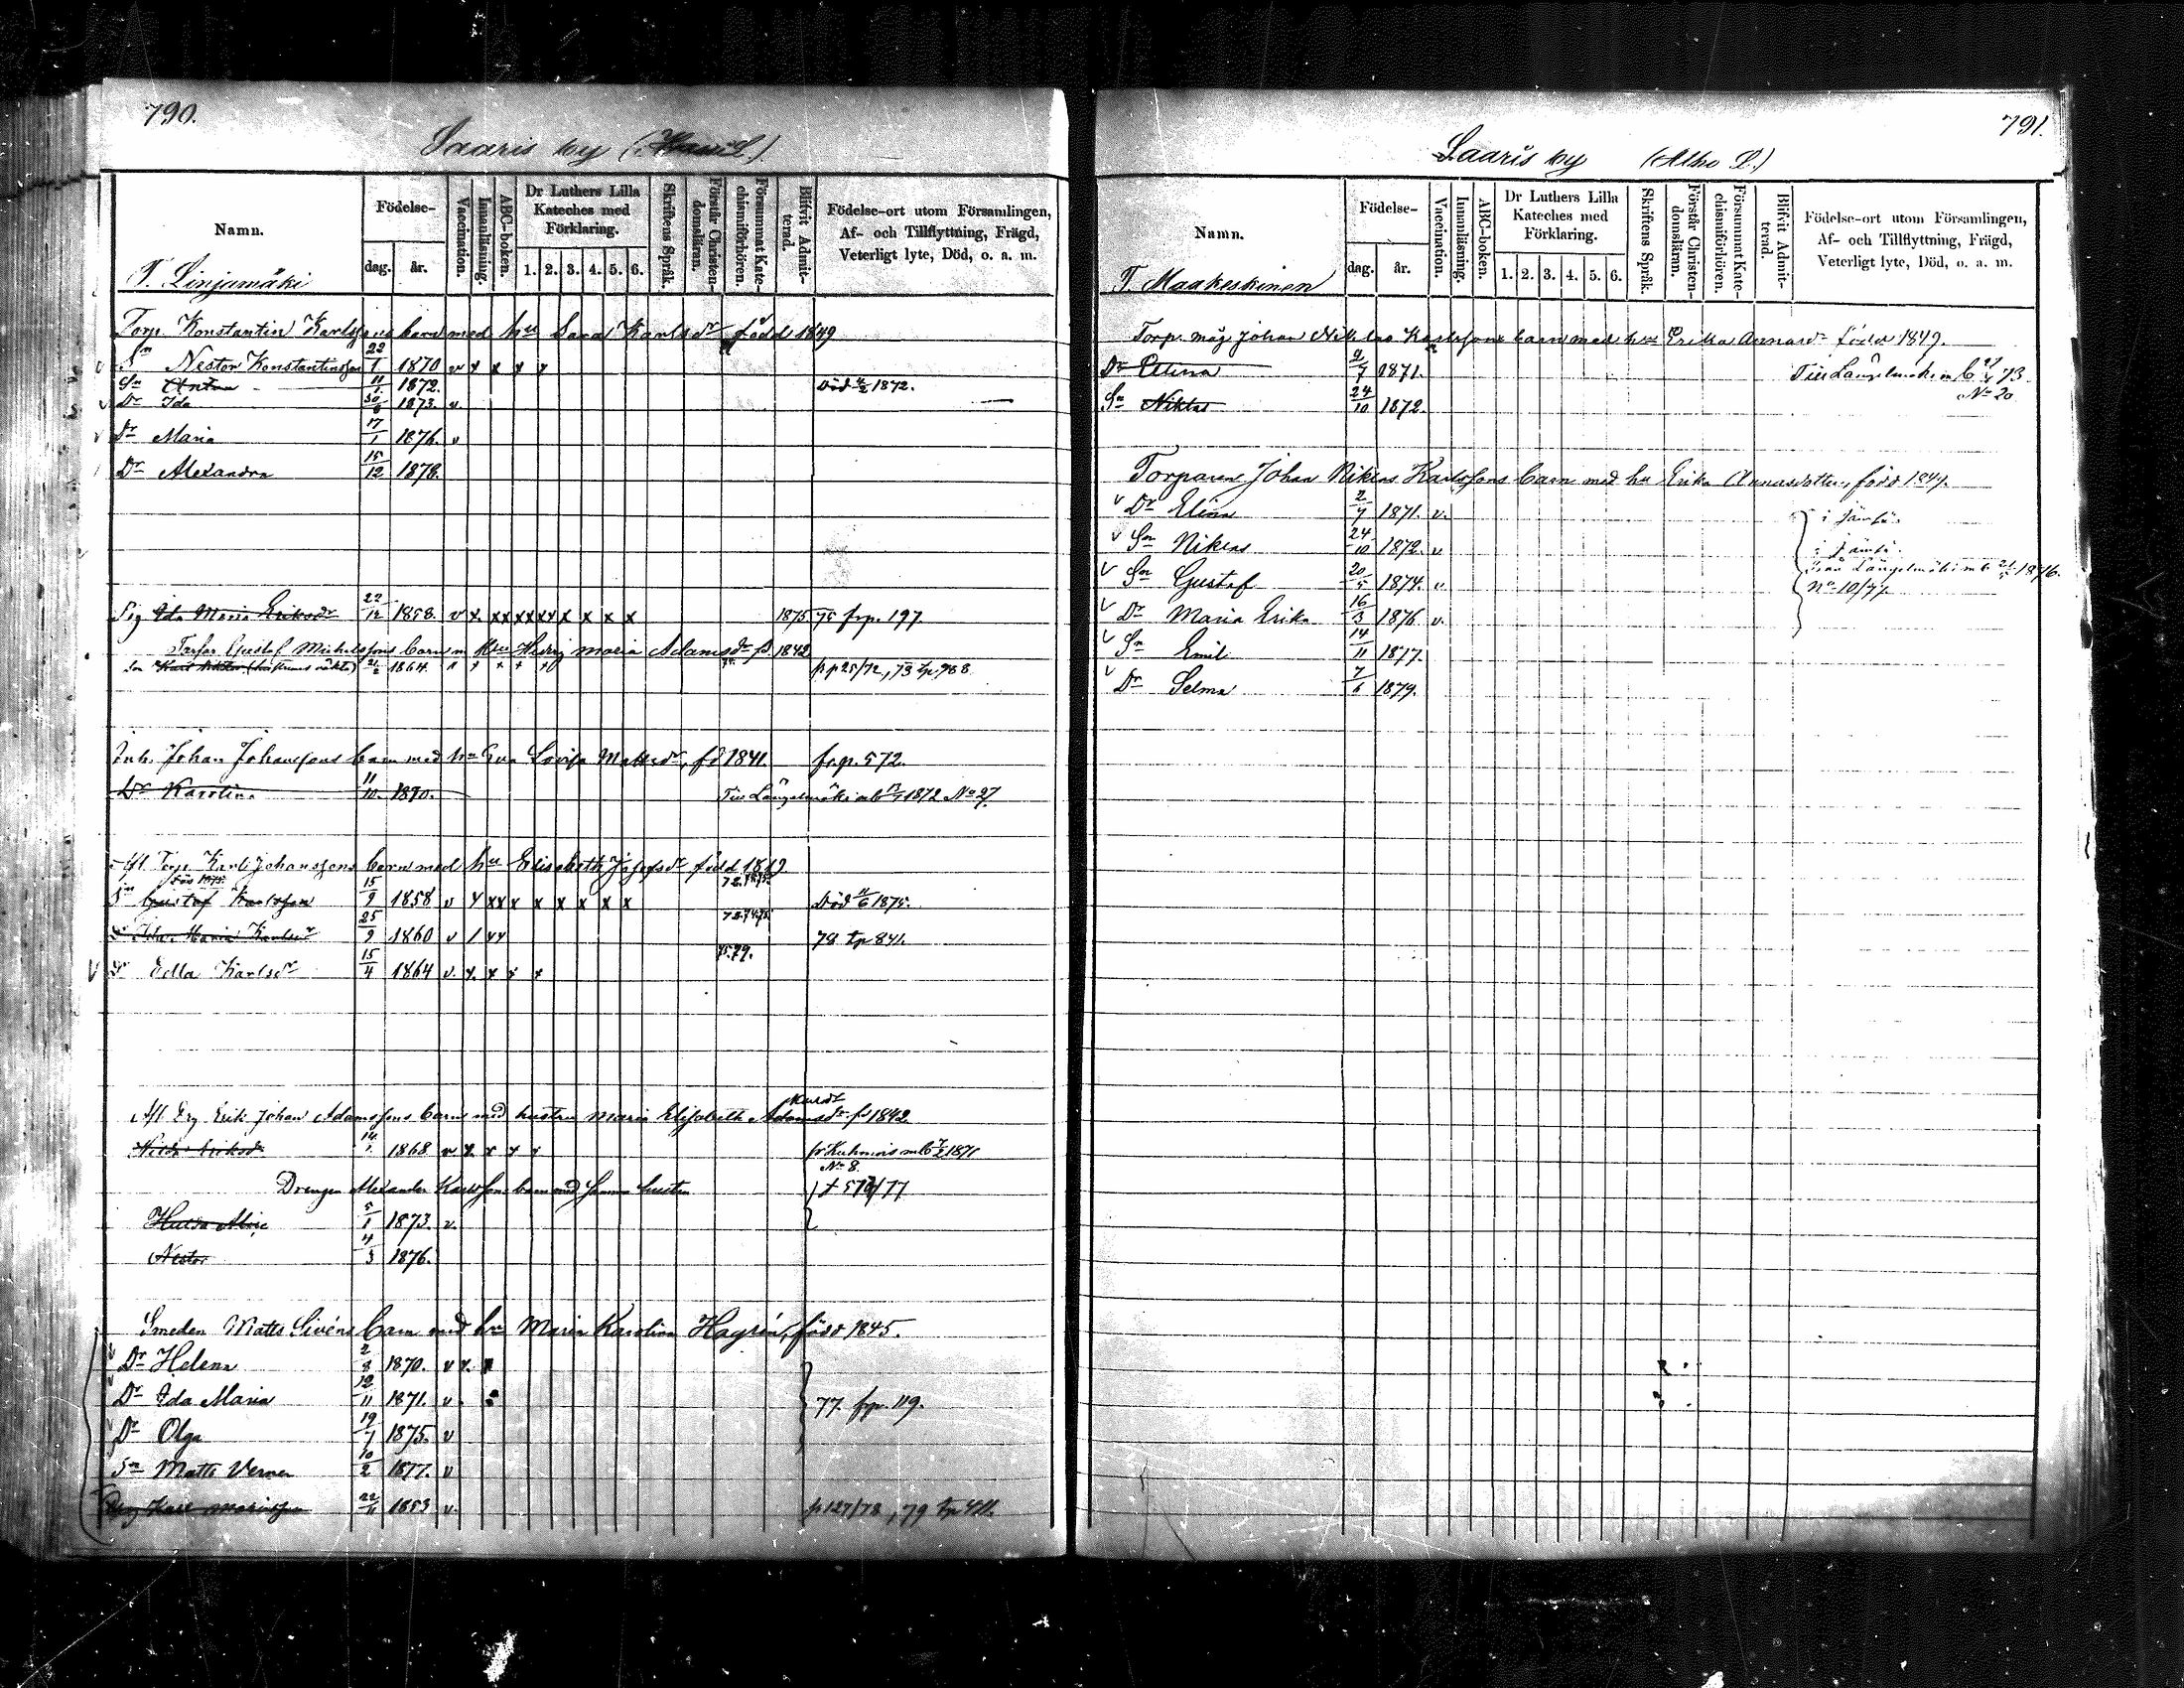 790.
Saaris by
Namn.
Födelse-
dag. år.
Vaccination.
Innanläsning.
ABC-boken.
Dr Luthers Lilla Kateches med Förklaring.
1. 2. 3. 4. 5. 6.
Skriftens Språk.
Förstår Christendomsläran.
Försummat Katechismiförhören.
Blifvit Admitterad.
Födelse-ort utom Församlingen, Af- och Tillflyttning, Frägd, Veterligt lyte, Död, o. a. m.
T. Linjamäki
Torp. Konstantin Karlssons barn med hu Sara Karlsdr född 1849
Sn Nestor Konstantinsson 22/1 1870 v x x x x
Sn Anton 11/1 1872. Död 1872.
Dr Ida 30/8 1873. v
Dr Maria 17/1 1876. v
Dr Alexandra 15/12 1878.
Pig Ida Maria Eriksdr 22/12 1858. v x. xx xx xx x x x x 1875 75 frp. 197
Gustaf Michelssons barn m hu Hedvig Maria Adamsdr f. 1842
1864. p p 25/72, 73 tp. 968
Inh. Johan Johanssons barn med hu Eva Lovisa Mattsdr, fd 1841. frp. 572.
Dr Karolina 11/10. 1870. Till Längelmäki mb 1872 No 27
Afl Torp Karl Johanssons barn med hu Elisabeth Josefsdr född
Sn Gustaf Karlsson 15/9 1858 v x xx x x x x x x Död 1875.
Maria Karlsdr 25/9 1860 v / xx 78 tp 841.
Dr Edla Karlsdr 15/4 1864 v. x. x x x 75.79.
Afl Drg Erik Johan Adamssons barn med hustru Maria Elisabeth Adamsdr fd 1842
Hilda Eriksdr 14/1. 1868 v x. x x x fr Kuhmois mb 1871 No 8.
Drengen Alexander Karlssons barn med samma hustru
Hulda Alina 5/1 1873. v.
Nestor 4/3 1876.
Smeden Matts Siréns barn med hu Maria Karolina Hagrén, född 1845.
Dr Helena 2/8 1870. v x.
Dr Ida Maria 12/11 1871. v. 77. frp. 119.
Dr Olga 19/7 1875. v
Sn Matts Verner 10/2 1877. v
Karl 22/11 1853 v. p 127/78, 79 tp
791.
Saaris by (Alho L.)
Namn.
Födelse-
dag. år.
Vaccination.
Innanläsning.
ABC-boken.
Dr Luthers Lilla Kateches med Förklaring.
1. 2. 3. 4. 5. 6.
Skriftens Språk.
Förstår Christendomsläran.
Försummat Katechismiförhören.
Blifvit Admitterad.
Födelse-ort utom Församlingen, Af- och Tillflyttning, Frägd, Veterligt lyte, Död, o. a. m.
T. Maakeskinen
Torp. måg Johan Niklas Karlssons barn med hu Erika Annasdr född 1849.
Dr Elina 2/7 1871. Till Längelmäki 73 No 20
Sn Niklas 24/10 1872.
Torparen Johan Niklas Karlssons barn med hu Erika Annasdotter, född 1849.
Dr Elina 2/7 1871. v. i Jämsä.
Sn Niklas 24/10 1872. v i Jämsä.
Sn Gustaf 20/5 1874. v. från Längelmäki mb 1876. No 10/77.
Dr Maria Erika 16/3 1876 v.
Sn Emil 14/11 1877.
Dr Selma 7/6 1879.